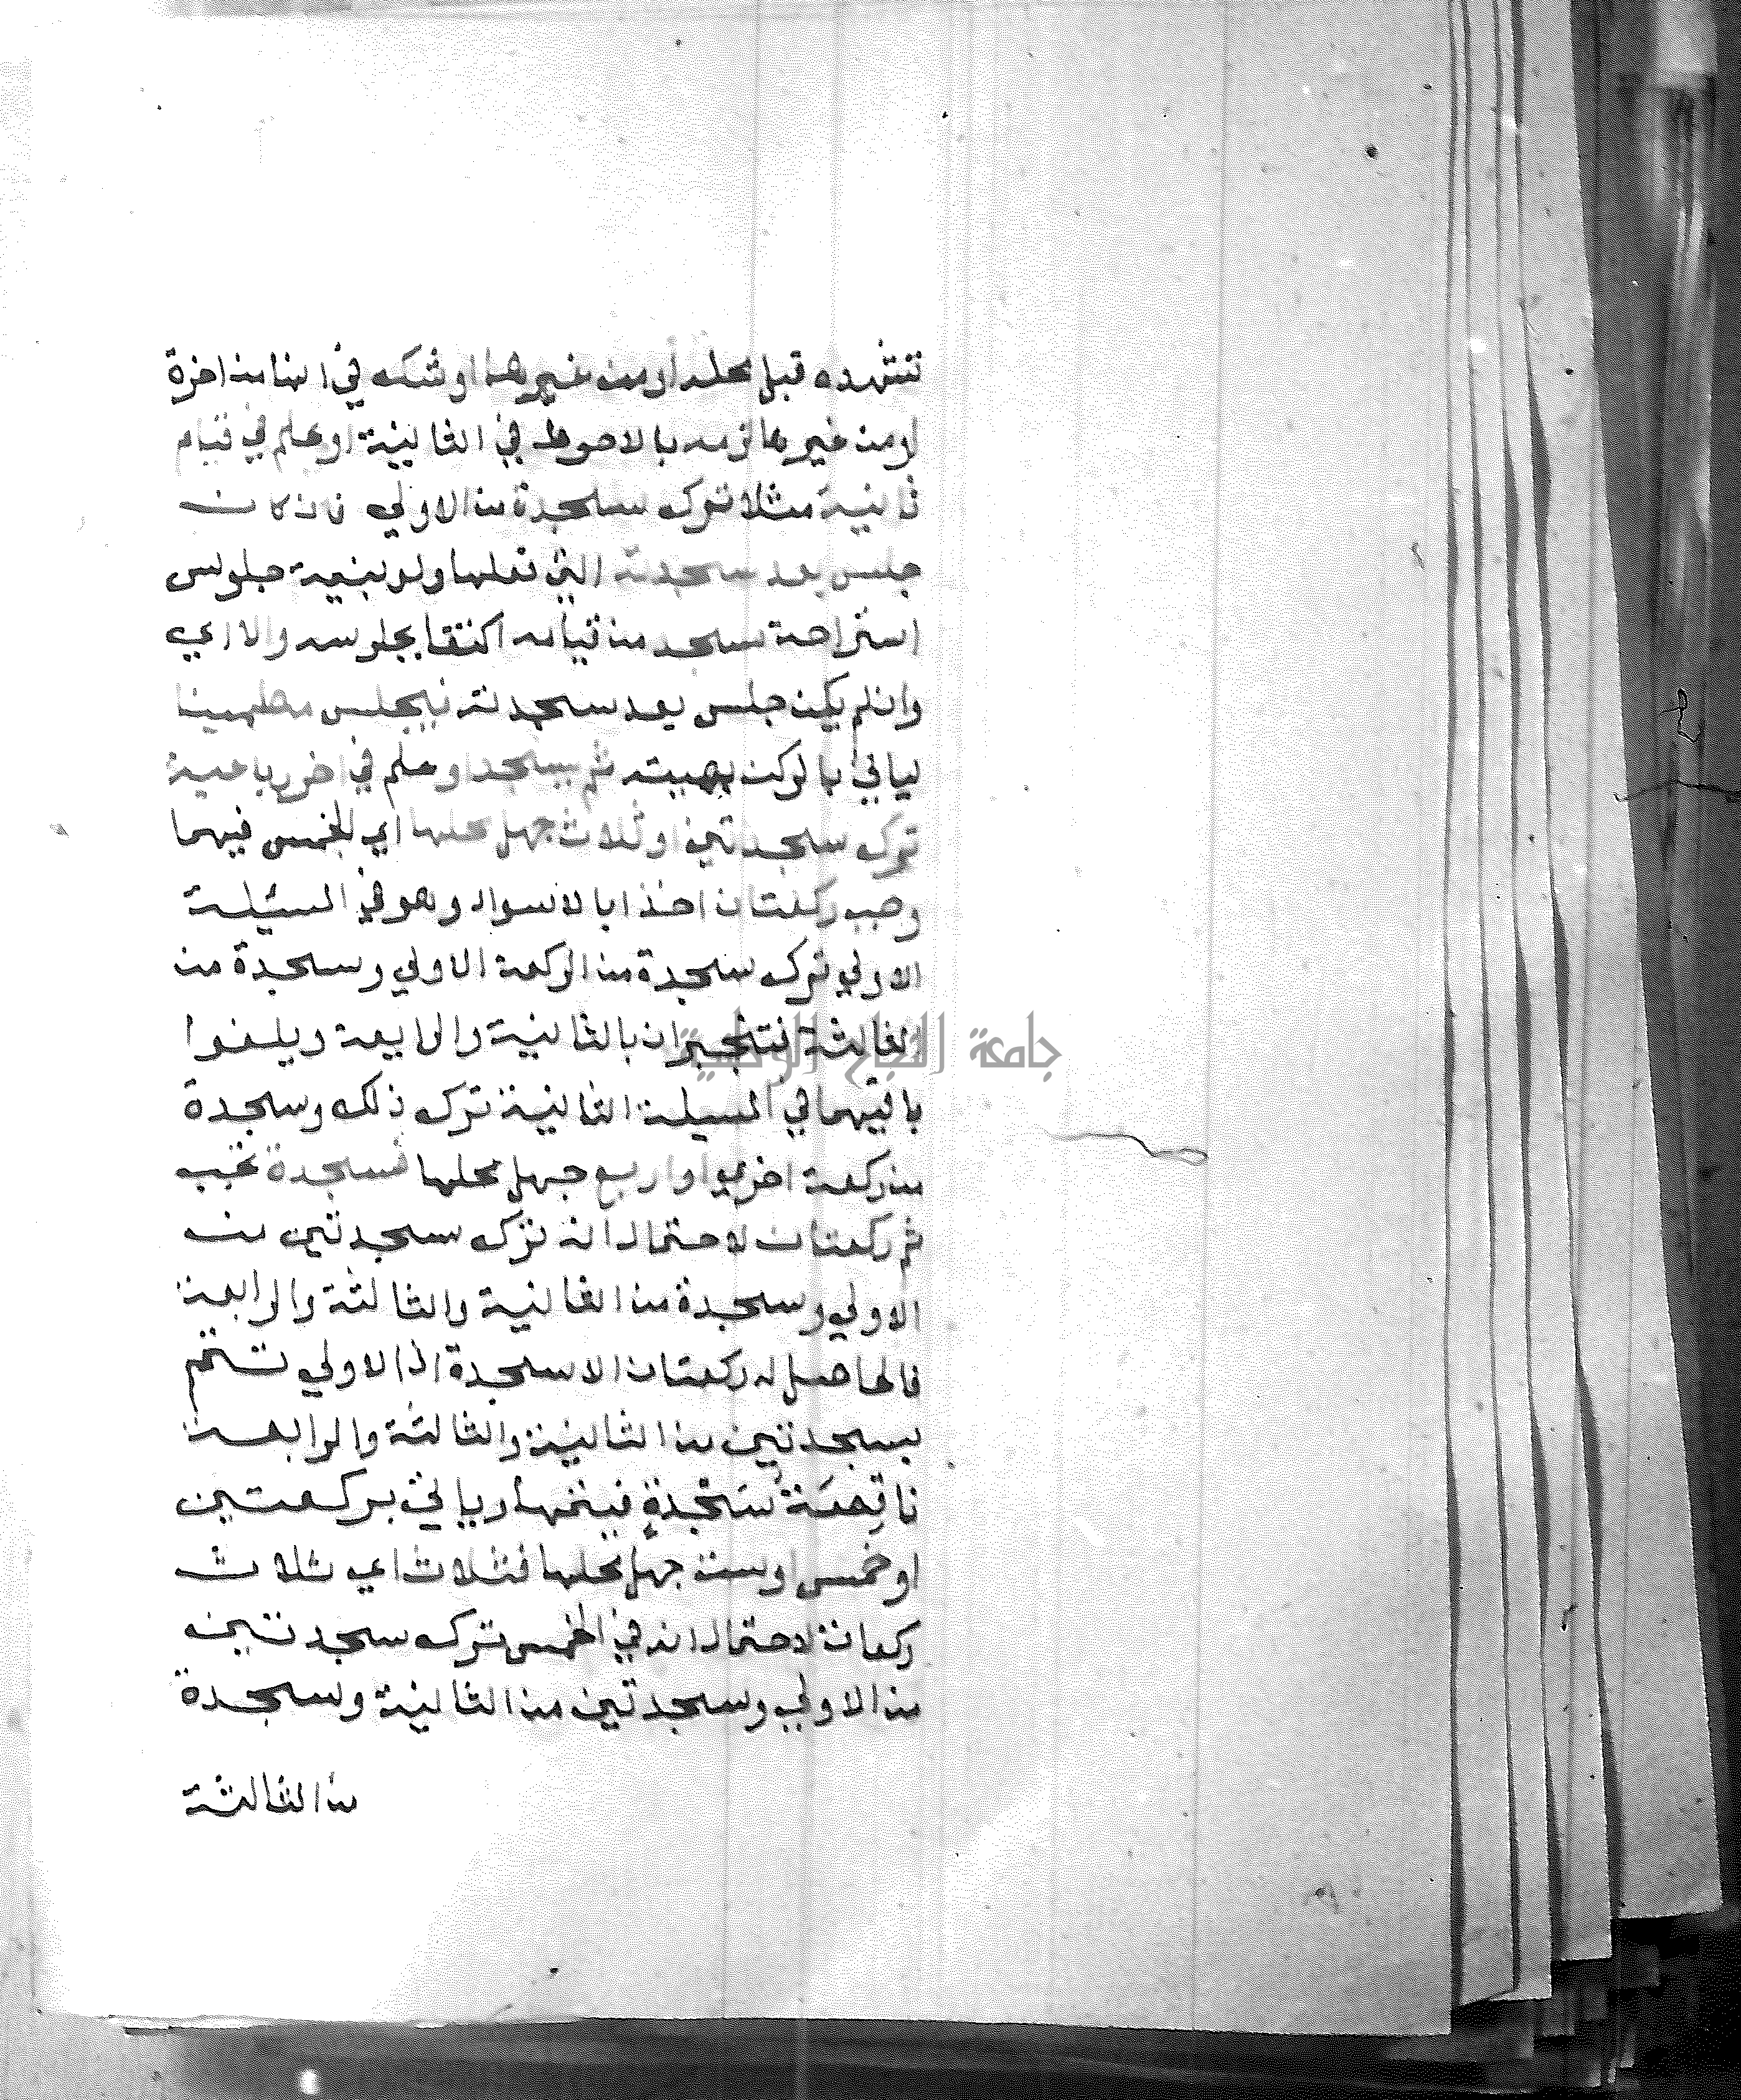 تشهده قبل محله او من غيرها او شكه في انها من اخرة
او من غيرها لزمه بالاحوط في الثانية او علم في قيام
ثانية مثلا ترك سجدة من الاولي فان كان
جلس بعد سجدته التي فعلها ولو بنية جلوس
استراحة سجد من قيامه اكتفا بجلوسه والا اي
وان لم يكن جلس بعد سجدته فيجلس مطمينا
لياتي بالركن بهيبته ثم يسجد او علم في اخر رباعية
ترك سجدتين او ثلاث جهل محلها اي الخمس فيهما
وجب ركعتان اخذا بالاسواد وهو في المسئيلة
الاولي ترك سجدة من الركعة الاولي وسجدة من
الثالثة فتنجبران بالثانية والرابعة ويلغوا
باقيهما في المسيلة الثانية ترك ذلك وسجدة
من ركعة اخري او اربع جهل محلها فسجدة تجب
ثم ركعتان لاحتمال انه ترك سجدتين من
الاولي وسجدة من الثانية والثالثة والرابعة
فالحاصل له ركعتان الا سجدة اذ الاولي تتم
بسجدتين من الثانية والثالثة والرابعة
ناقصة سَجْدةٍ فيتمها وياتي بركعتين
او خمس او ست جهل محلها فثلاث اي ثلاث
ركعات لاحتمال انه في الخمس ترك سجدتين
من الاولي وسجدتين من الثانية وسجدة
من الثالثة
جامعة النجاح الوطنية